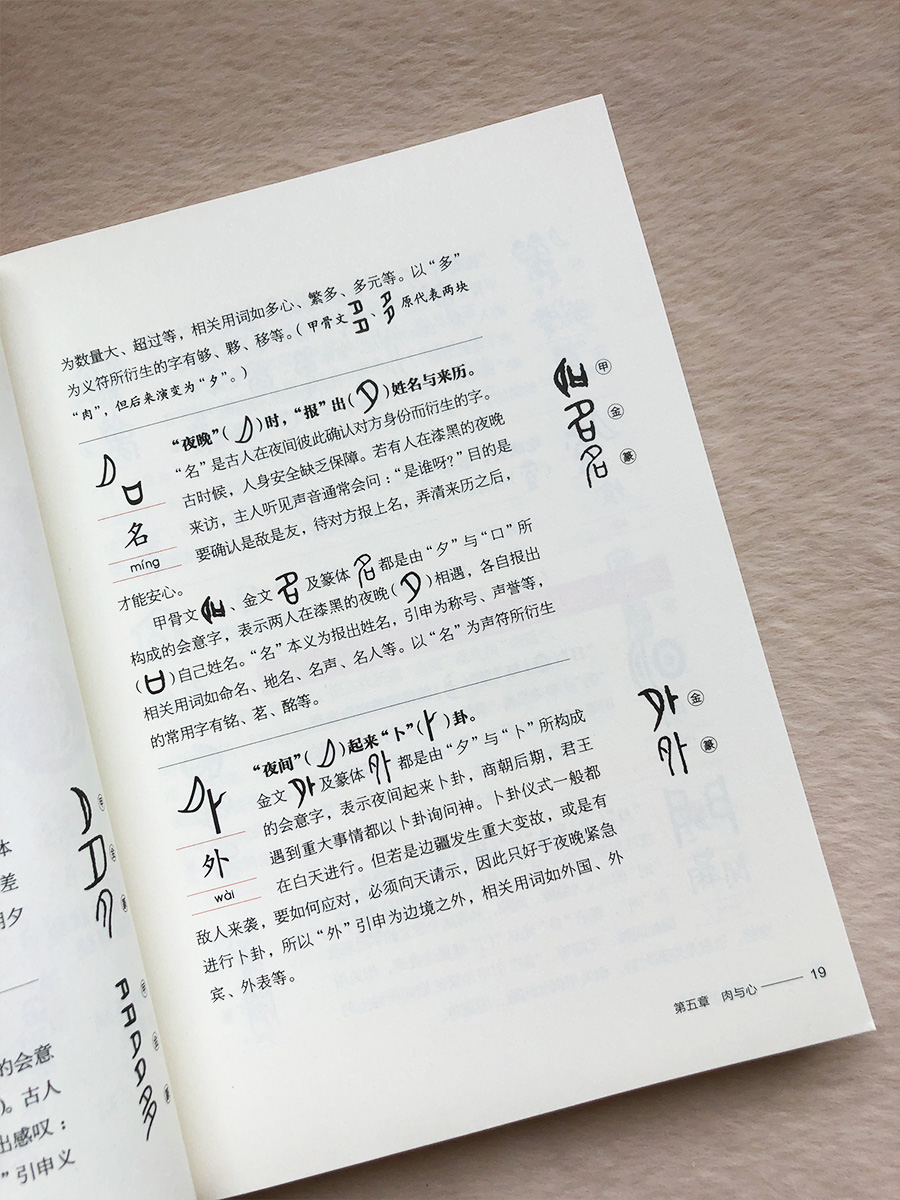 为数量大、超过等，相关用词如多心、繁多、多元等。以“多”
为义符所衍生的字有够、夥、移等。（甲骨文、原代表两块
“肉”，但后来演变为“夕”。）
名
míng
“夜晚”（）时，“报”出（）姓名与来历。
“名”是古人在夜间彼此确认对方身份而衍生的字。
古时候，人身安全缺乏保障。若有人在漆黑的夜晚
来访，主人听见声音通常会问：“是谁呀？”目的是
要确认是敌是友，待对方报上名，弄清来历之后，
才能安心。
甲骨文、金文及篆体都是由“夕”与“口”所
构成的会意字，表示两人在漆黑的夜晚（）相遇，各自报出
（）自己姓名。“名”本义为报出姓名，引申为称号、声誉等，
相关用词如命名、地名、名声、名人等。以“名”为声符所衍生
的常用字有铭、茗、酩等。
甲
金
篆
外
wài
“夜间”（）起来“卜”（）卦。
金文及篆体都是由“夕”与“卜”所构成
的会意字，表示夜间起来卜卦，商朝后期，君王
遇到重大事情都以卜卦询问神。卜卦仪式一般都
在白天进行。但若是边疆发生重大变故，或是有
敌人来袭，要如何应对，必须向天请示，因此只好于夜晚紧急
进行卜卦，所以“外”引申为边境之外，相关用词如外国、外
宾、外表等。
金
篆
第五章 肉与心 19
体
差
月夕
的会意
）。古人
出感叹：
”引申义